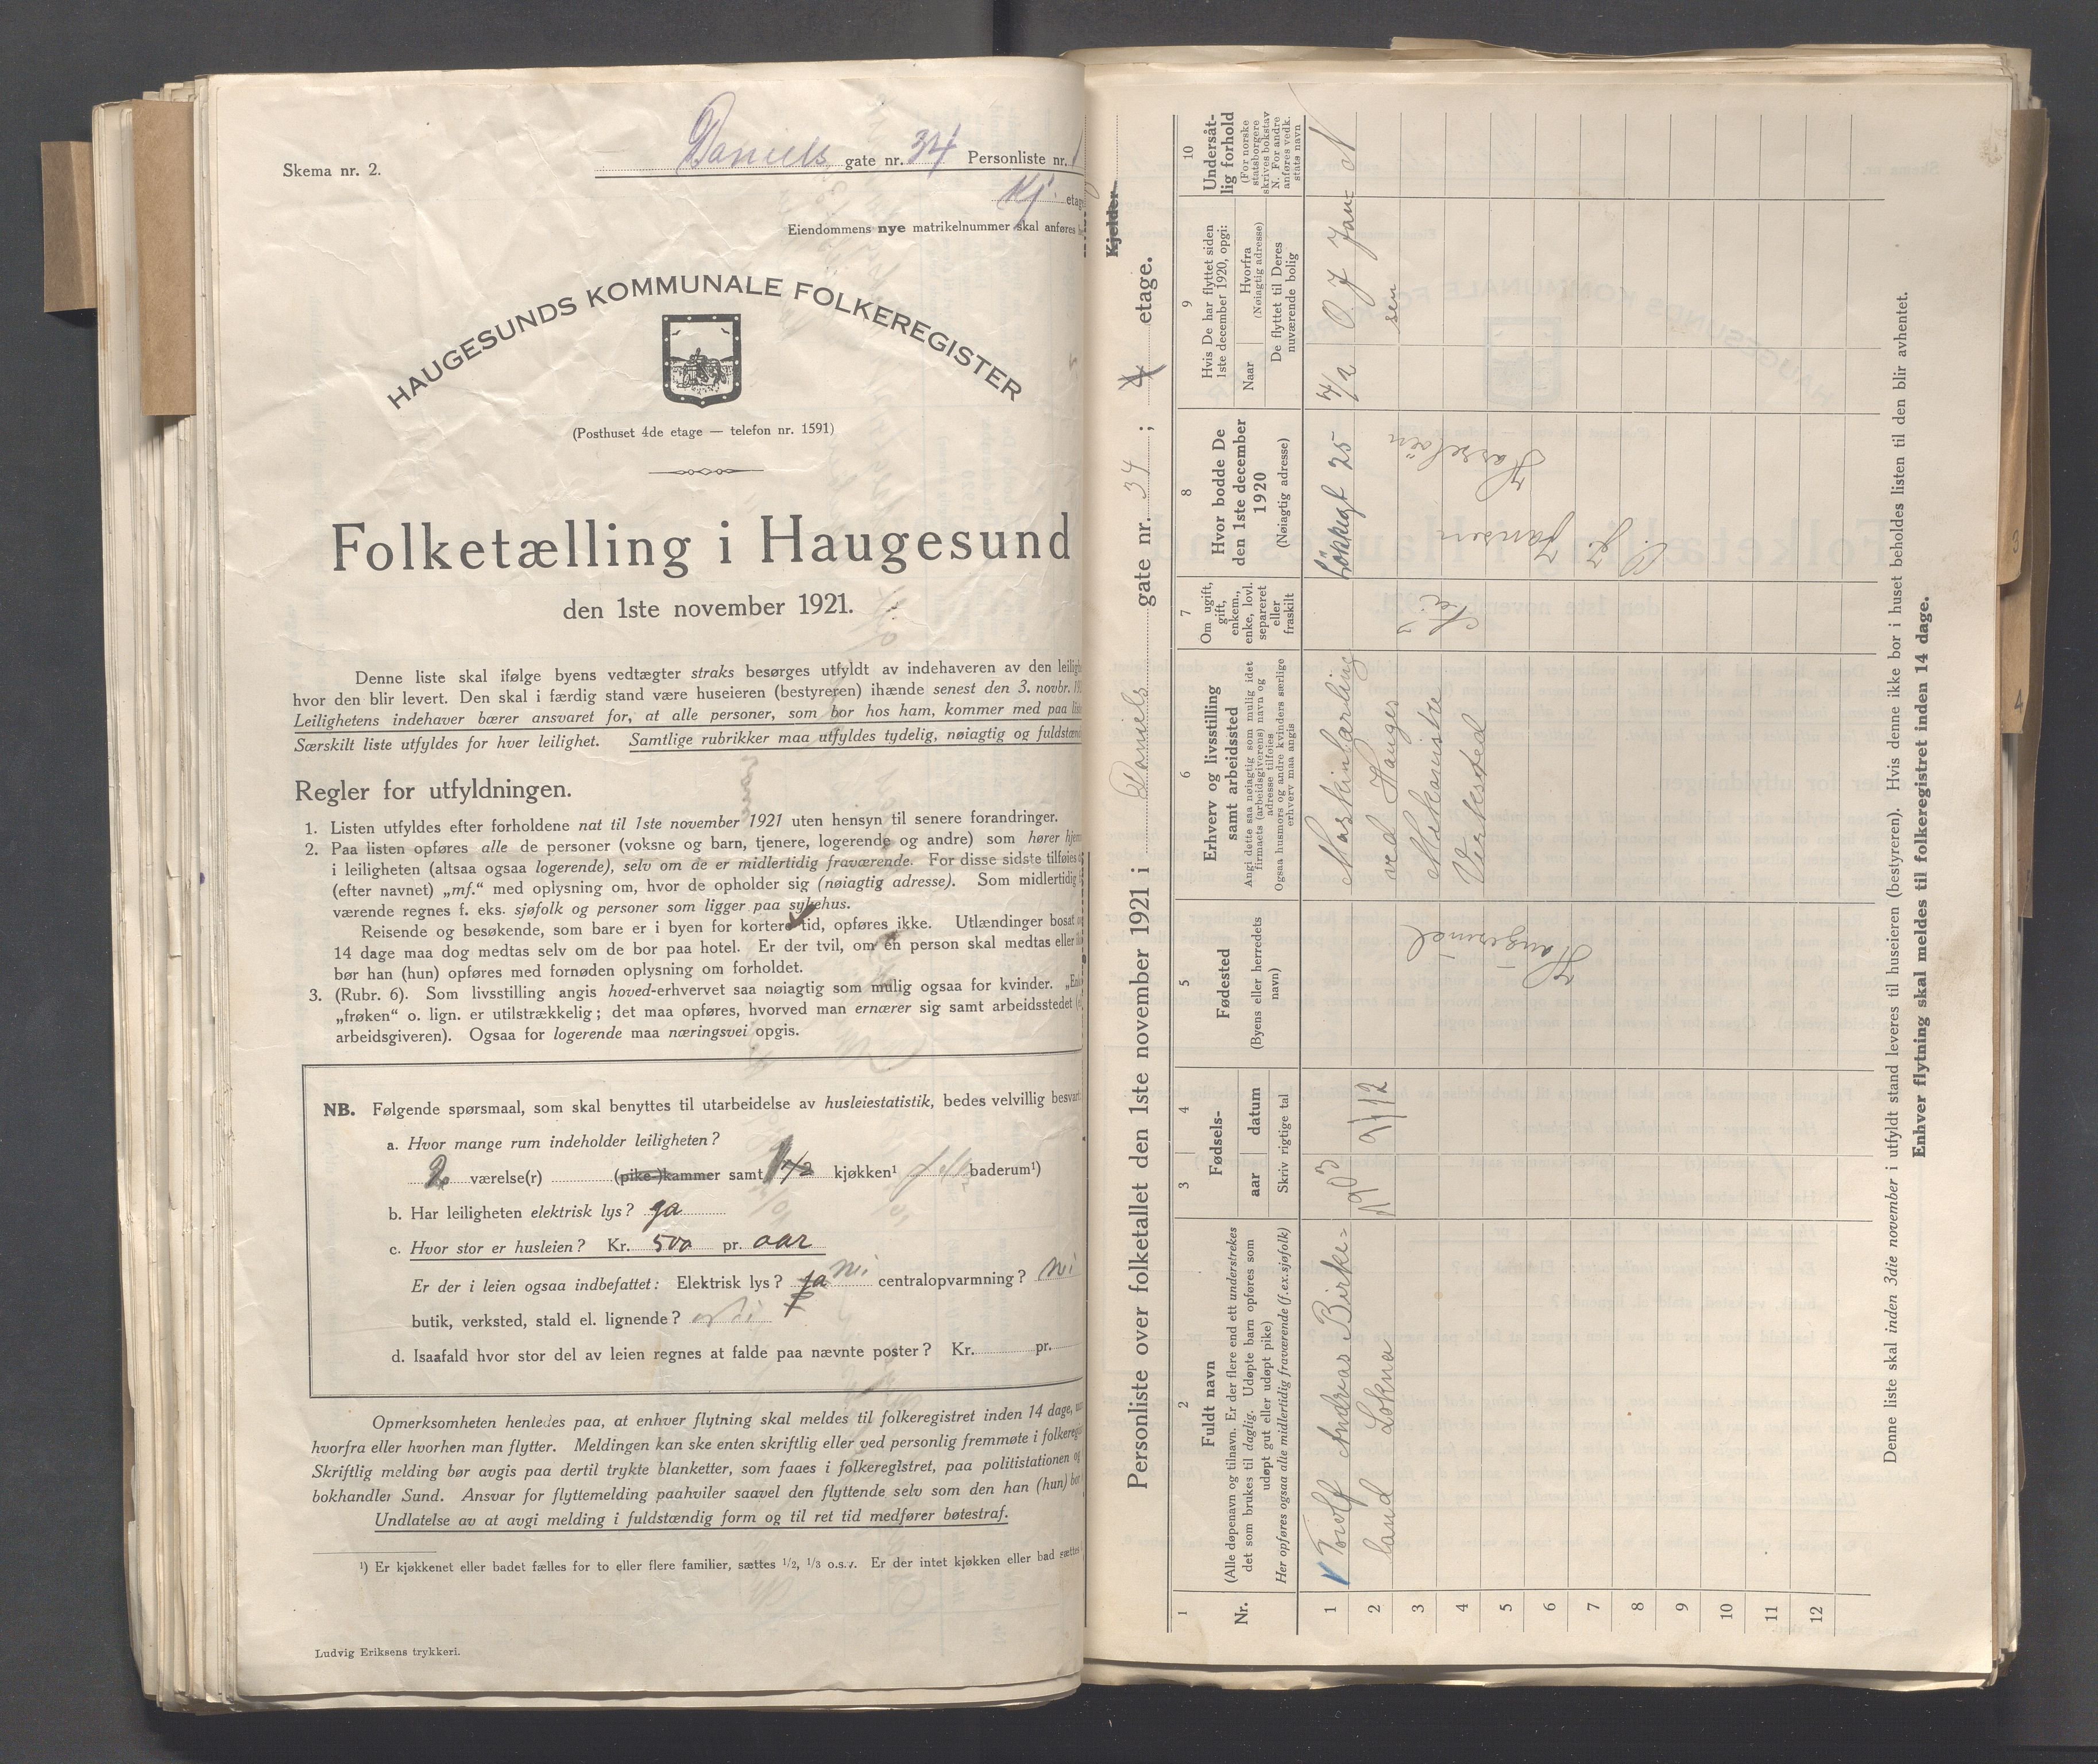 Skema nr. 2.
Daniels gate nr. 34 Personliste nr. 1
Kj. etage
Eiendommens nye matrikelnummer skal anføres
HAUGESUNDS KOMMUNALE FOLKEREGISTER
(Posthuset 4de etage — telefon nr. 1591)
Folketælling i Haugesund
den 1ste november 1921.
Denne liste skal ifølge byens vedtægter straks besørges utfyldt av indehaveren av den leilighe
hvor den blir levert. Den skal i færdig stand være huseieren (bestyreren) ihænde senest den 3. novbr. 192
Leilighetens indehaver bærer ansvaret for, at alle personer, som bor hos ham, kommer med paa liste
Særskilt liste utfyldes for hver leilighet. Samtlige rubrikker maa utfyldes tydelig, nøiagtig og fuldstænd
Regler for utfyldningen.
1. Listen utfyldes efter forholdene nat til 1ste november 1921 uten hensyn til senere forandringer.
2. Paa listen opføres alle de personer (voksne og barn, tjenere, logerende og andre) som hører hjem
i leiligheten (altsaa ogsaa logerende), selv om de er midlertidig fraværende. For disse sidste tilføies
(efter navnet) „mf.“ med oplysning om, hvor de opholder sig (nøiagtig adresse). Som midlertidig
værende regnes f. eks. sjøfolk og personer som ligger paa sykehus.
Reisende og besøkende, som bare er i byen for kortere tid, opføres ikke. Utlændinger bosat
14 dage maa dog medtas selv om de bor paa hotel. Er der tvil, om en person skal medtas eller
bør han (hun) opføres med fornøden oplysning om forholdet.
3. (Rubr. 6). Som livsstilling angis hoved-erhvervet saa nøiagtig som mulig ogsaa for kvinder. „Enke
„frøken“ o. lign. er utilstrækkelig; det maa opføres, hvorved man ernærer sig samt arbeidsstedet
arbeidsgiveren). Ogsaa for logerende maa næringsvei opgis.
NB. Følgende spørsmaal, som skal benyttes til utarbeidelse av husleiestatistik, bedes velvillig besvart
a. Hvor mange rum indeholder leiligheten?
2 værelse(r) (pike-)kammer samt 1 1/2 kjøkken¹ baderum¹)
b. Har leiligheten elektrisk lys? ja
c. Hvor stor er husleien? Kr. 500 pr. aar
Er der i leien ogsaa indbefattet: Elektrisk lys? ja ni centralopvarmning? ni
butik, verksted, stald el. lignende?
d. Isaafald hvor stor del av leien regnes at falde paa nævnte poster? Kr. pr.
Opmerksomheten henledes paa, at enhver flytning skal meldes til folkeregistret inden 14 dage,
hvorfra eller hvorhen man flytter. Meldingen kan ske enten skriftlig eller ved personlig fremmøte i folkeregi
Skriftlig melding bør avgis paa dertil trykte blanketter, som faaes i folkeregistret, paa politistationen og
bokhandler Sund. Ansvar for flyttemelding paahviler saavel den flyttende selv som den han (hun) bor
Undlatelse av at avgi melding i fuldstændig form og til ret tid medfører bøtestraf.
¹) Er kjøkkenet eller badet fælles for to eller flere familier, sættes 1/2, 1/3 o.s.v. Er der intet kjøkken eller bad sættes
Ludvig Eriksens trykkeri.
Personliste over folketallet den 1ste november 1921 i Daniels gate nr. 34 ; 4 etage. Kjelder
1
Nr.
2
Fuldt navn
(Alle døpenavn og tilnavn. Er der flere end ett understrekes
det som brukes til daglig. Udøpte barn opføres som
udøpt gut eller udøpt pike)
Her opføres ogsaa alle midlertidig fraværende (f.ex.sjøfolk)
3 4
Fødsels-
aar datum
Skriv rigtige tal
5
Fødested
(Byens eller herredets
navn)
6
Erhverv og livsstilling
samt arbeidssted
Angi dette saa nøiagtig som mulig idet
firmaets (arbeidsgiverens) navn og
adresse tilføies
Ogsaa husmors og andre kvinders særlige
erhverv maa angis
7
Om ugift,
gift,
enkem.,
enke, lovl.
separeret
eller
fraskilt
8
Hvor bodde De
den 1ste december
1920
(Nøiagtig adresse)
9
Hvis De har flyttet siden
1ste december 1920, opgi:
Naar
Hvorfra
(Nøiagtig adresse)
De flyttet til Deres
nuværende bolig
10
Undersåt-
lig forhold
(For norske
statsborgere
skrives bokstav
N. For andre
anføres vedk.
stats navn
1 Torolf Andreas Birke= Maskinlærling Løkkegt 25 4/2 O. J Jan= N
2 land Lokna 1903 9/12 ved Hauges sen
3 Mekaniske
4 Verksted
5
6
7
8
9
10
11
12
Haugesund
O. J. Jansen
Denne liste skal inden 3die november i utfyldt stand leveres til huseieren (bestyreren). Hvis denne ikke bor i huset beholdes listen til den blir avhentet.
Enhver flytning skal meldes til folkeregistret inden 14 dage.